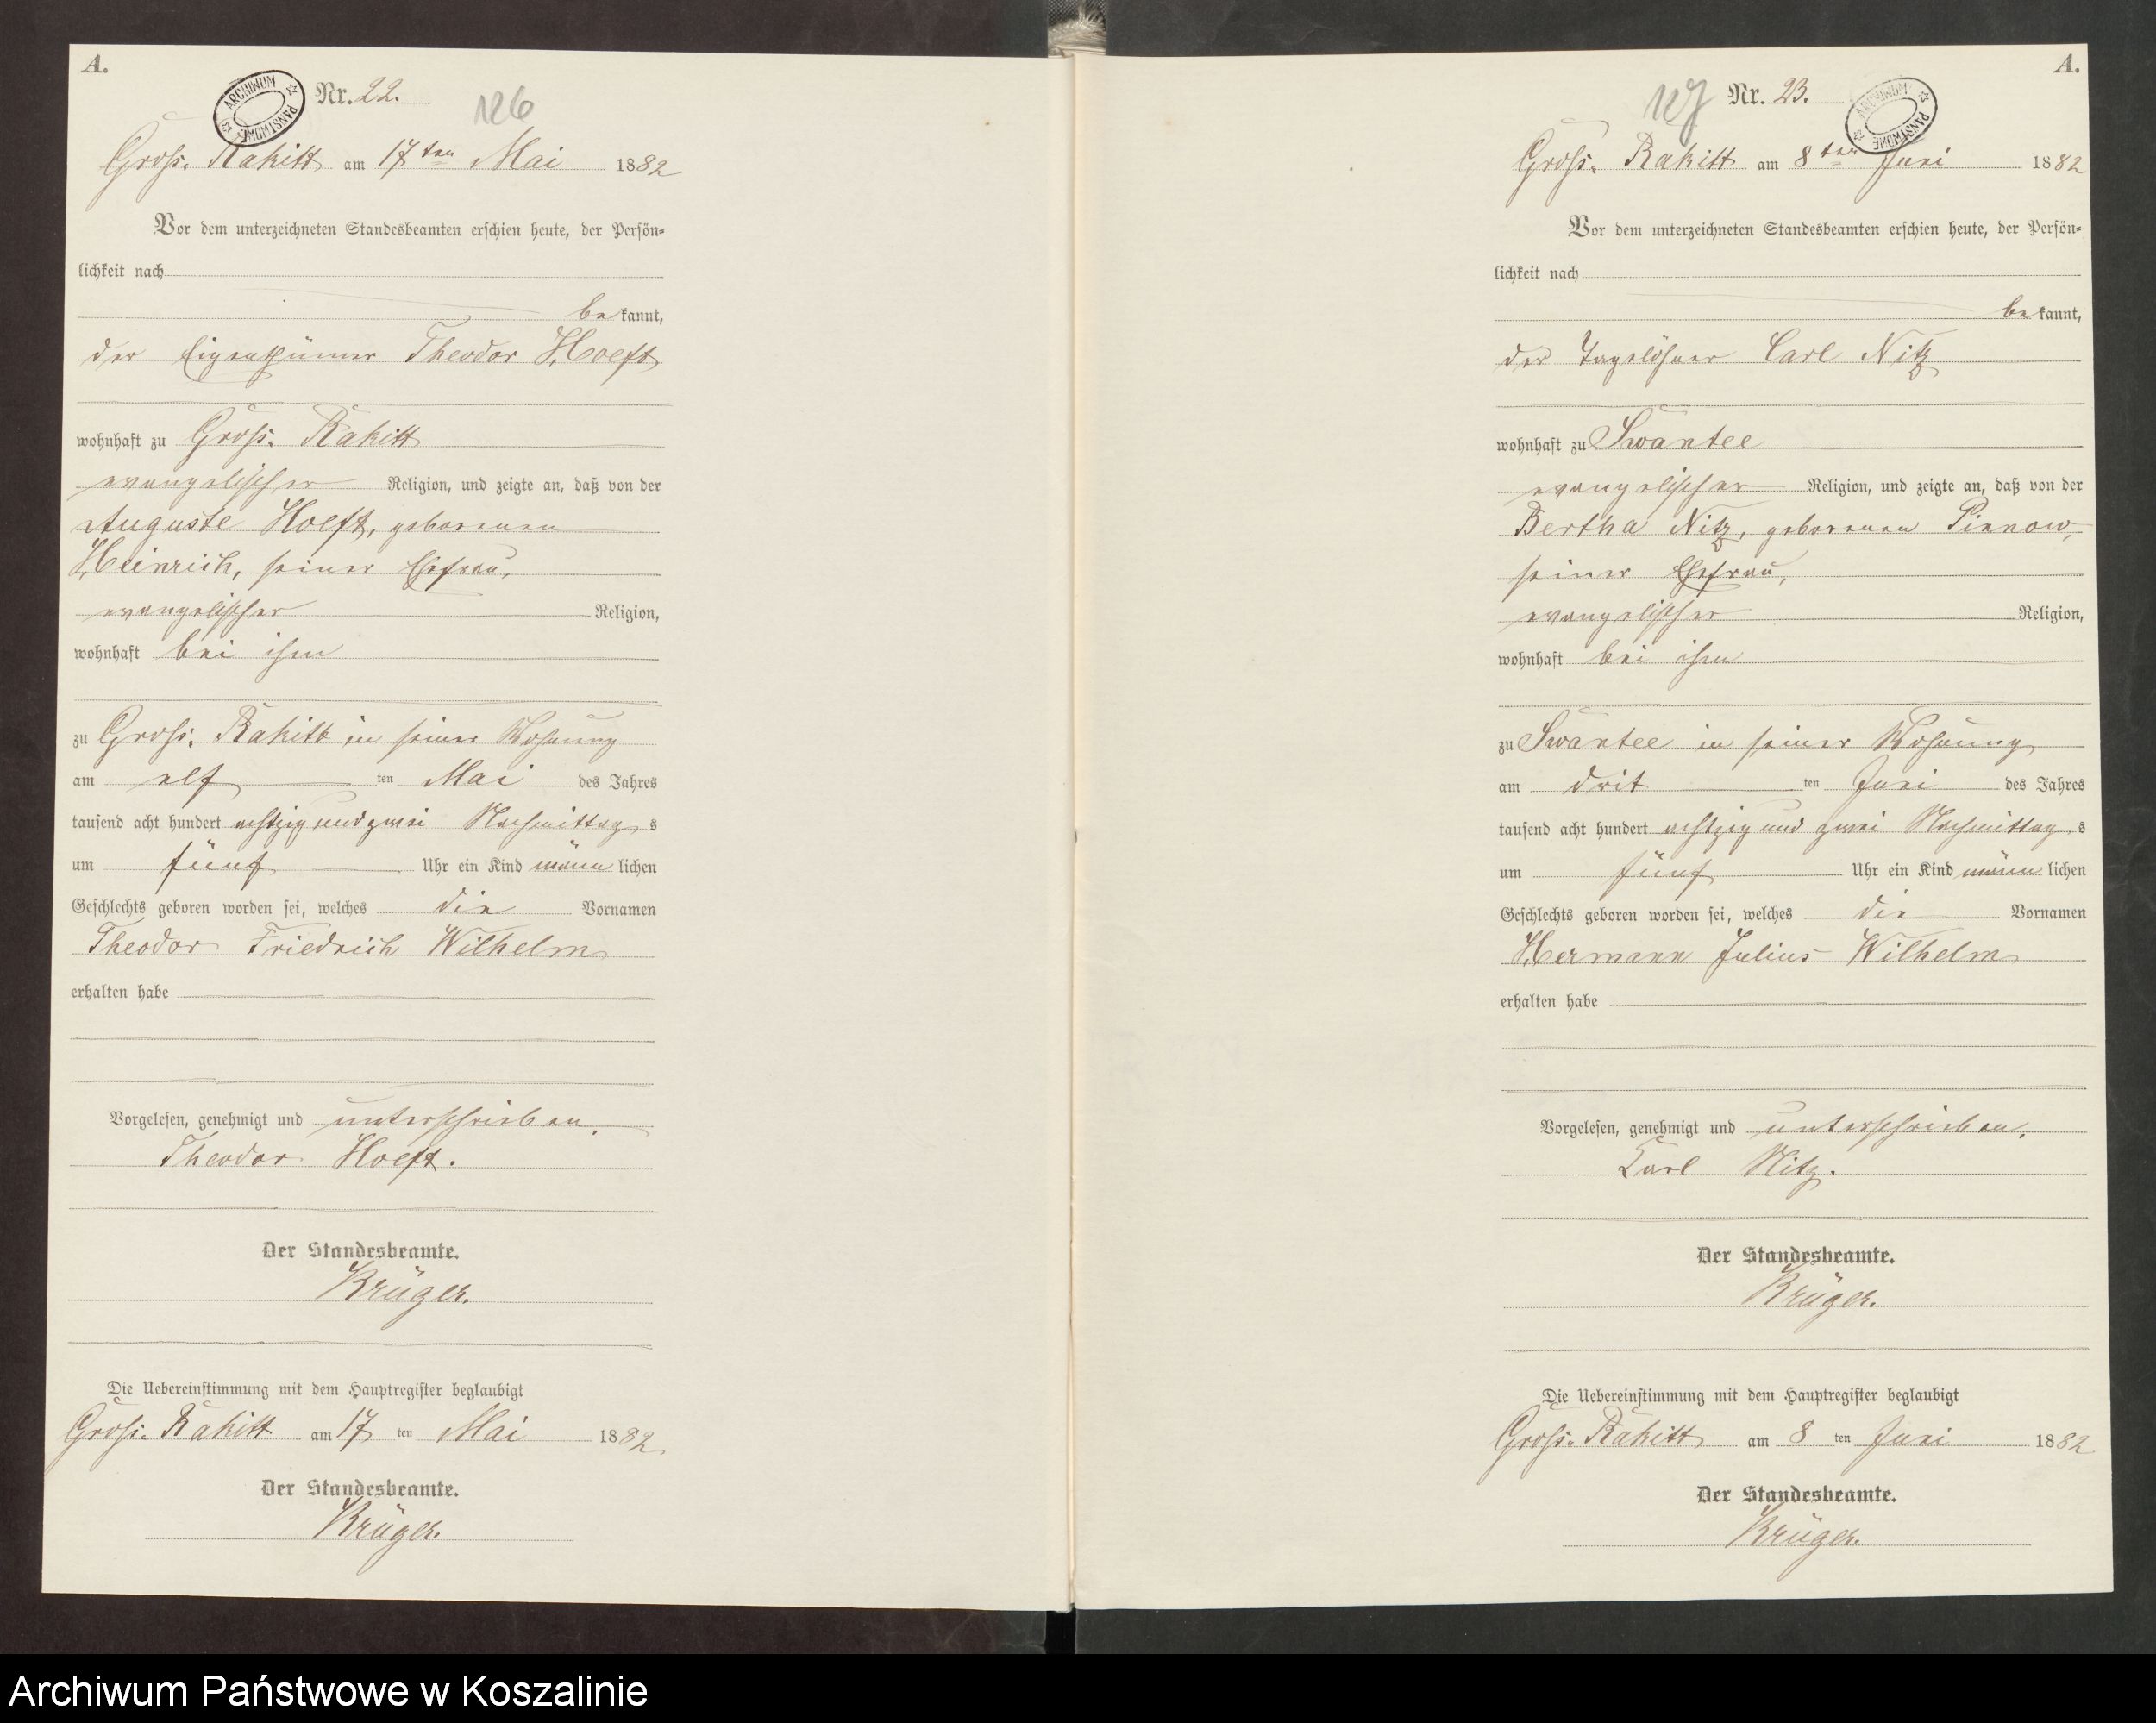 A.
ARCHIWUM PAŃSTWOWE
Nr. 22.
126
Gross-Rakitt am 17ten Mai 1882
Vor dem unterzeichneten Standesbeamten erschien heute, der Persön-
lichkeit nach
bekannt,
der Eigenthümer Theodor Hoeft
wohnhaft zu Gross-Rakitt
evangelischer Religion, und zeigte an, daß von der
Auguste Hoeft, geborenen
Heinrich, seiner Ehefrau,
evangelischer Religion,
wohnhaft bei ihm
zu Gross-Rakitt in seiner Wohnung
am elf ten Mai des Jahres
tausend acht hundert achtzig und zwei Nachmittags
um fünf Uhr ein Kind männlichen
Geschlechts geboren worden sei, welches die Vornamen
Theodor Friedrich Wilhelm
erhalten habe
Vorgelesen, genehmigt und unterschrieben.
Theodor Hoeft.
Der Standesbeamte.
Krüger.
Die Uebereinstimmung mit dem Hauptregister beglaubigt
Gross-Rakitt am 17 ten Mai 1882
Der Standesbeamte.
Krüger.
A.
127
Nr. 23.
ARCHIWUM PAŃSTWOWE
Gross-Rakitt am 8ten Juni 1882
Vor dem unterzeichneten Standesbeamten erschien heute, der Persön-
lichkeit nach
bekannt,
der Tagelöhner Carl Nitz
wohnhaft zu Swantee
evangelischer Religion, und zeigte an, daß von der
Bertha Nitz, geborenen Pienow,
seiner Ehefrau,
evangelischer Religion,
wohnhaft bei ihm
zu Swantee in seiner Wohnung
am drit ten Juni des Jahres
tausend acht hundert achtzig und zwei Nachmittags
um fünf Uhr ein Kind männlichen
Geschlechts geboren worden sei, welches die Vornamen
Hermann Julius Wilhelm
erhalten habe
Vorgelesen, genehmigt und unterschrieben.
Karl Nitz.
Der Standesbeamte.
Krüger.
Die Uebereinstimmung mit dem Hauptregister beglaubigt
Gross-Rakitt am 8 ten Juni 1882
Der Standesbeamte.
Krüger.
Archiwum Państwowe w Koszalinie